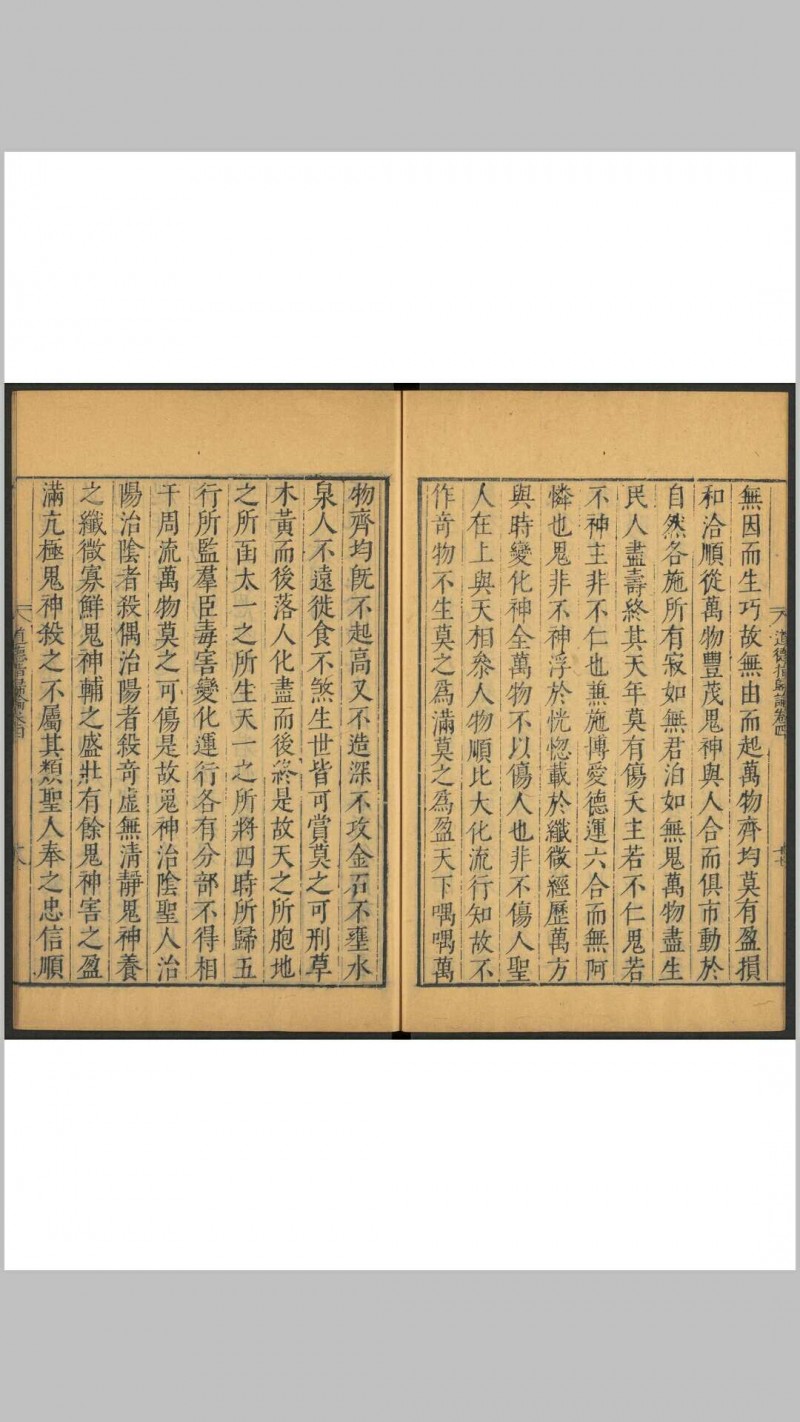 無因而生巧故無由而起萬物齊均莫有盈損
和洽順從萬物豐茂鬼神與人合而俱市動於
自然各施所有寂如無君泊如無鬼萬物盡生
民人盡壽終其天年莫有傷夭主若不仁鬼若
不神主非不仁也兼施博愛德運六合而無阿
憐也鬼非不神浮於恍惚載於纖微經歷萬方
與時變化神全萬物不以傷人也非不傷人聖
人在上與天相叅人物順比大化流行知故不
作竒物不生莫之爲滿莫之爲盈天下喁喁萬
物齊均旣不起高又不造深不攻金石不壅水
泉人不遠徙食不煞生世皆可賞莫之可刑草
木黃而後落人化盡而後終是故天之所胞地
之所函太一之所生天一之所將四時所歸五
行所監羣臣毒害變化運行各有分部不得相
干周流萬物莫之可傷是故鬼神治陰聖人治
陽治陰者殺偶治陽者殺竒虛無清靜鬼神養
之纖微寡鮮鬼神輔之盛壯有餘鬼神害之盈
滿亢極鬼神殺之不屬其類聖人奉之忠信順